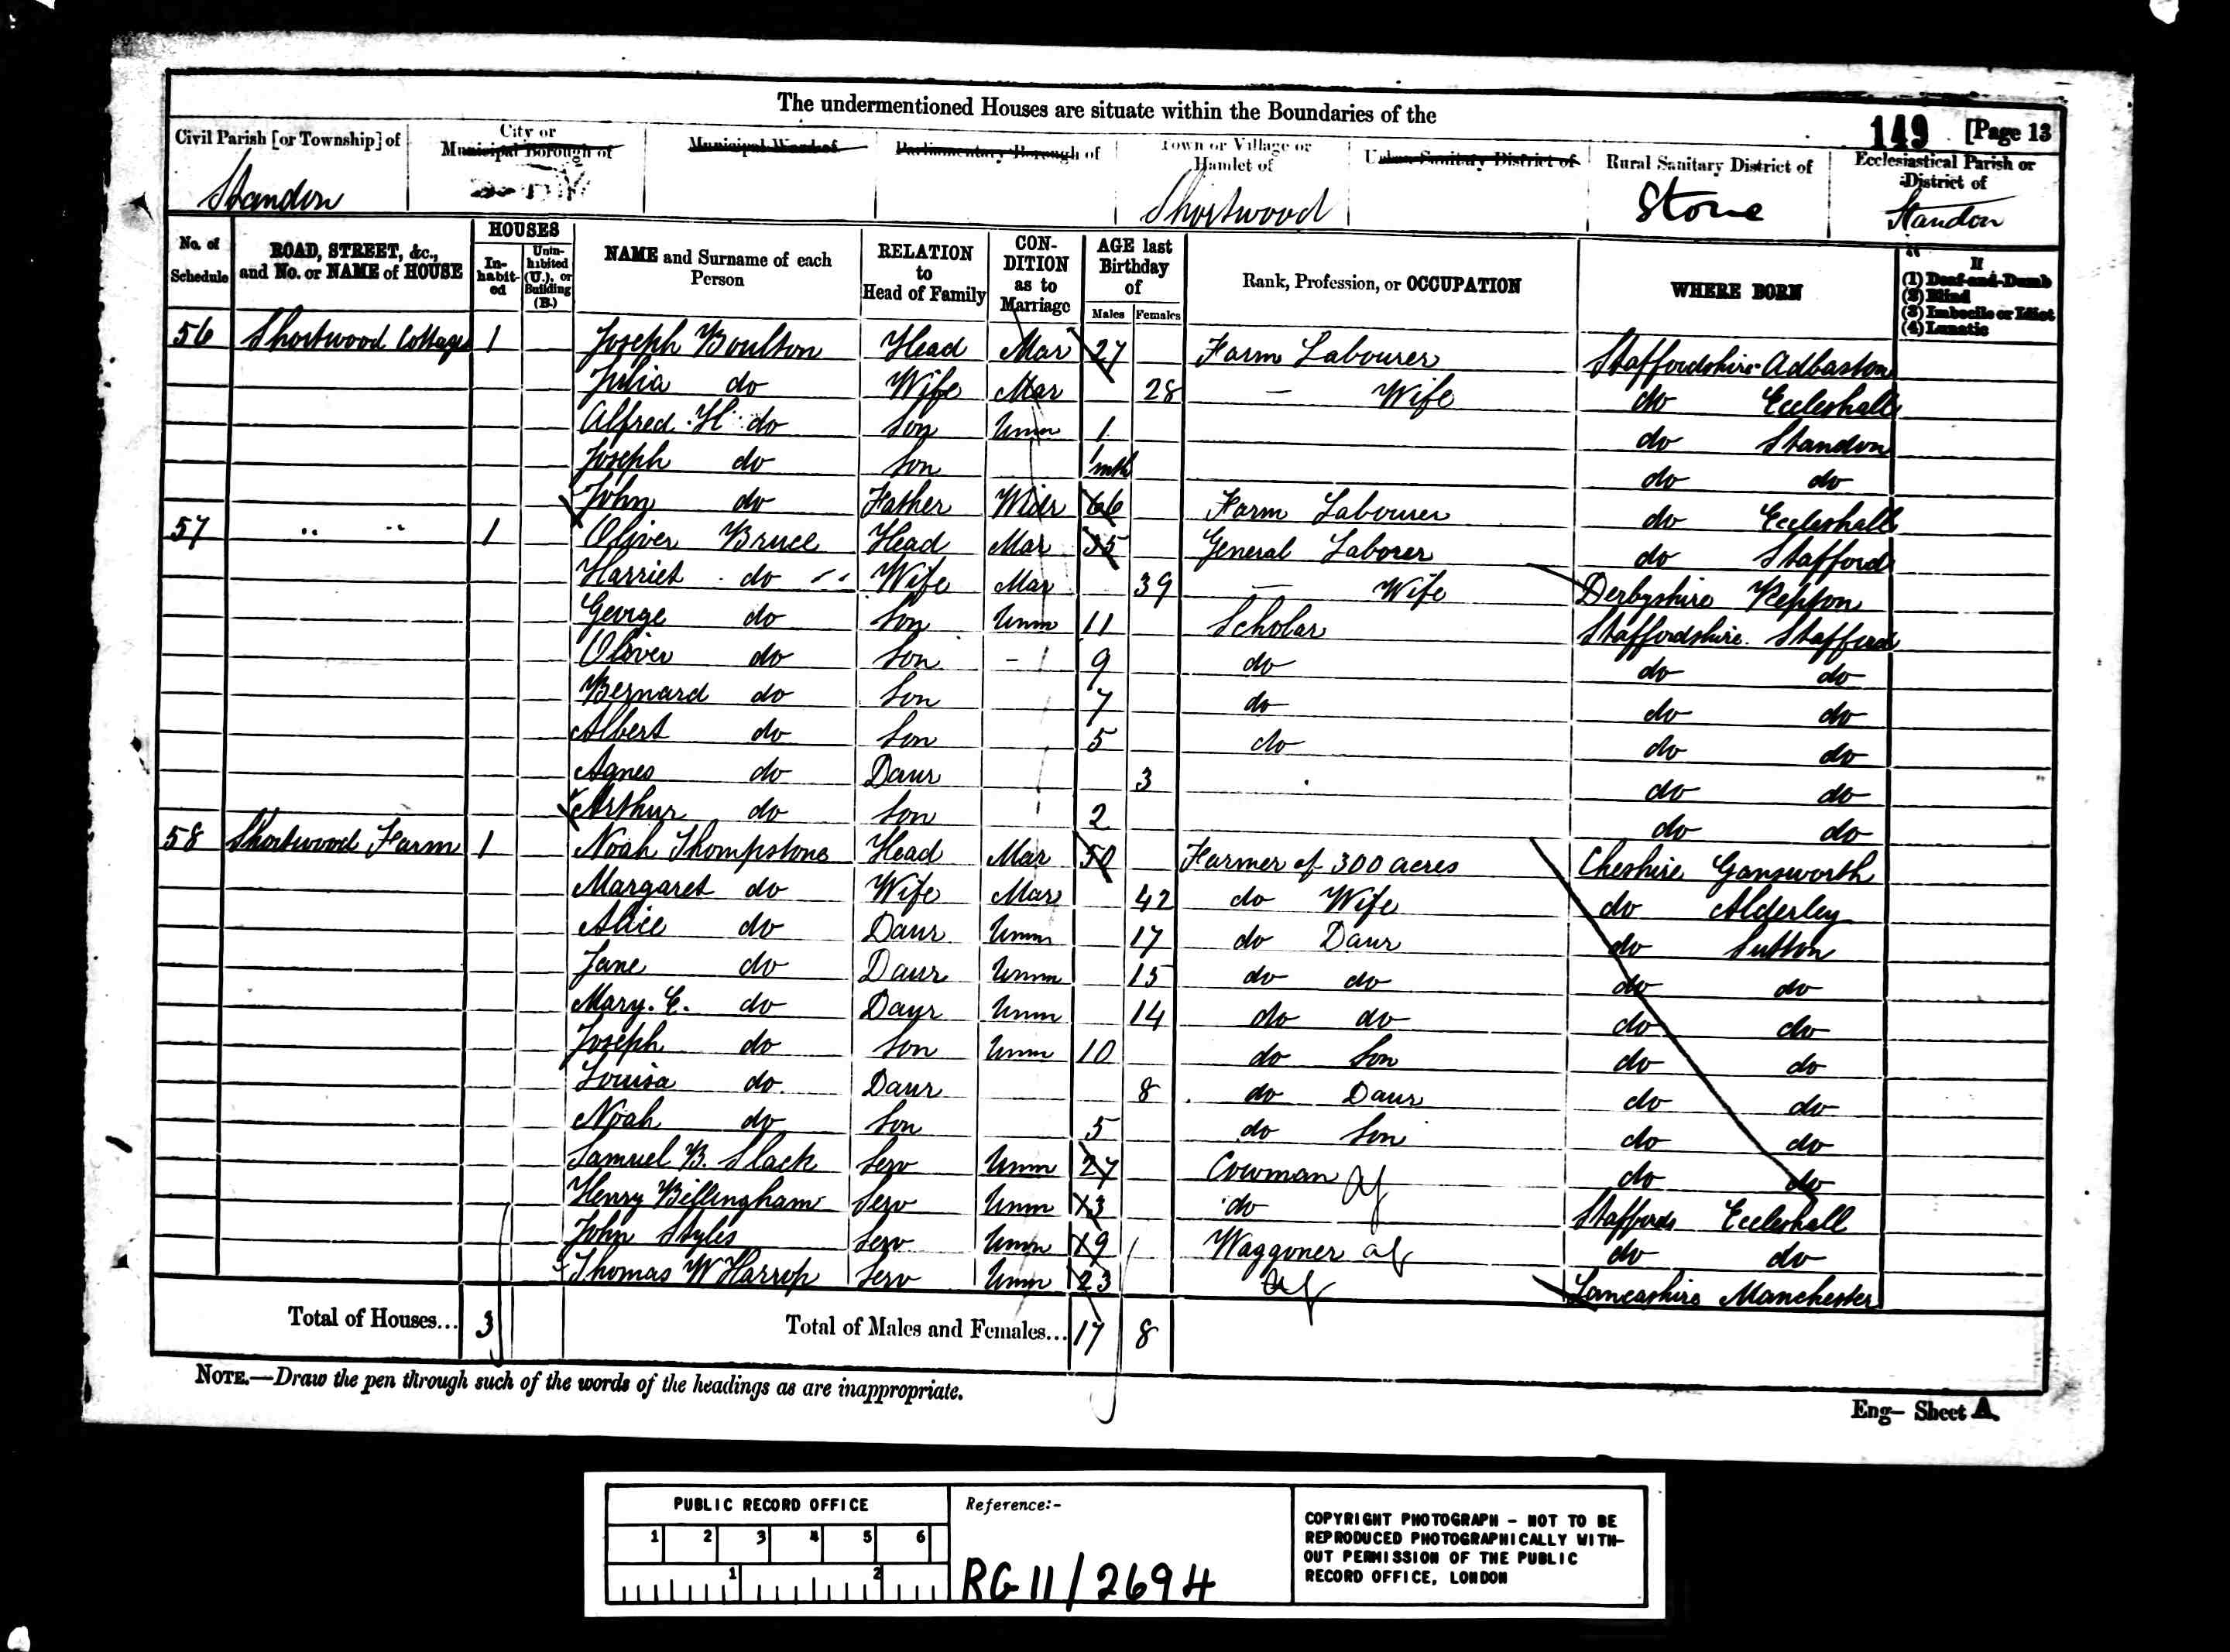 The undermentioned Houses are situate within the Boundaries of the
149 [Page 13
Civil Parish [or Township] of City or Municipal Borough of Municipal Ward of Parliamentary Borough of Town or Village or Hamlet of Urban Sanitary District of Rural Sanitary District of Ecclesiastical Parish or District of
Standon Shortwood Stone Standon
No. of Schedule ROAD, STREET, &c., and No. or NAME of HOUSE HOUSES Inhabited Uninhabited (U.), or Building (B.) NAME and Surname of each Person RELATION to Head of Family CONDITION as to Marriage AGE last Birthday of Males Females Rank, Profession, or OCCUPATION WHERE BORN If (1) Deaf-and-Dumb (2) Blind (3) Imbecile or Idiot (4) Lunatic
56 Shortwood Cottage 1 Joseph Boulton Head Mar 27 Farm Labourer Staffordshire Adbaston
Julia do Wife Mar 28 — Wife do Eccleshall
Alfred H do Son Unm 1 do Standon
Joseph do Son 1 mth do do
John do Father Widr 66 Farm Labourer do Eccleshall
57 " " 1 Oliver Bruce Head Mar 35 General Laborer do Stafford
Harriet do Wife Mar 39 — Wife Derbyshire Repton
George do Son Unm 11 Scholar Staffordshire Stafford
Oliver do Son - 9 do do do
Bernard do Son 7 do do do
Albert do Son 5 do do do
Agnes do Daur 3 do do
Arthur do Son 2 do do
58 Shortwood Farm 1 Noah Thompstone Head Mar 50 Farmer of 300 acres Cheshire Gansworth
Margaret do Wife Mar 42 do Wife do Alderley
Alice do Daur Unm 17 do Daur do Sutton
Jane do Daur Unm 15 do do do do
Mary. E. do Daur Unm 14 do do do do
Joseph do Son Unm 10 do Son do do
Louisa do Daur 8 do Daur do do
Noah do Son 5 do Son do do
Samuel B. Slack Serv Unm 27 Cowman do do
Henry Billingham Serv Unm 13 do Staffords Eccleshall
John Styles Serv Unm 19 Waggoner do do
Thomas W Harrop Serv Unm 23 Lancashire Manchester
Total of Houses... 3 Total of Males and Females... 17 8
NOTE.—Draw the pen through such of the words of the headings as are inappropriate.
Eng— Sheet A.
PUBLIC RECORD OFFICE
1 2 3 4 5 6
1 2
Reference:-
RG 11/2694
COPYRIGHT PHOTOGRAPH - NOT TO BE
REPRODUCED PHOTOGRAPHICALLY WITH-
OUT PERMISSION OF THE PUBLIC
RECORD OFFICE, LONDON